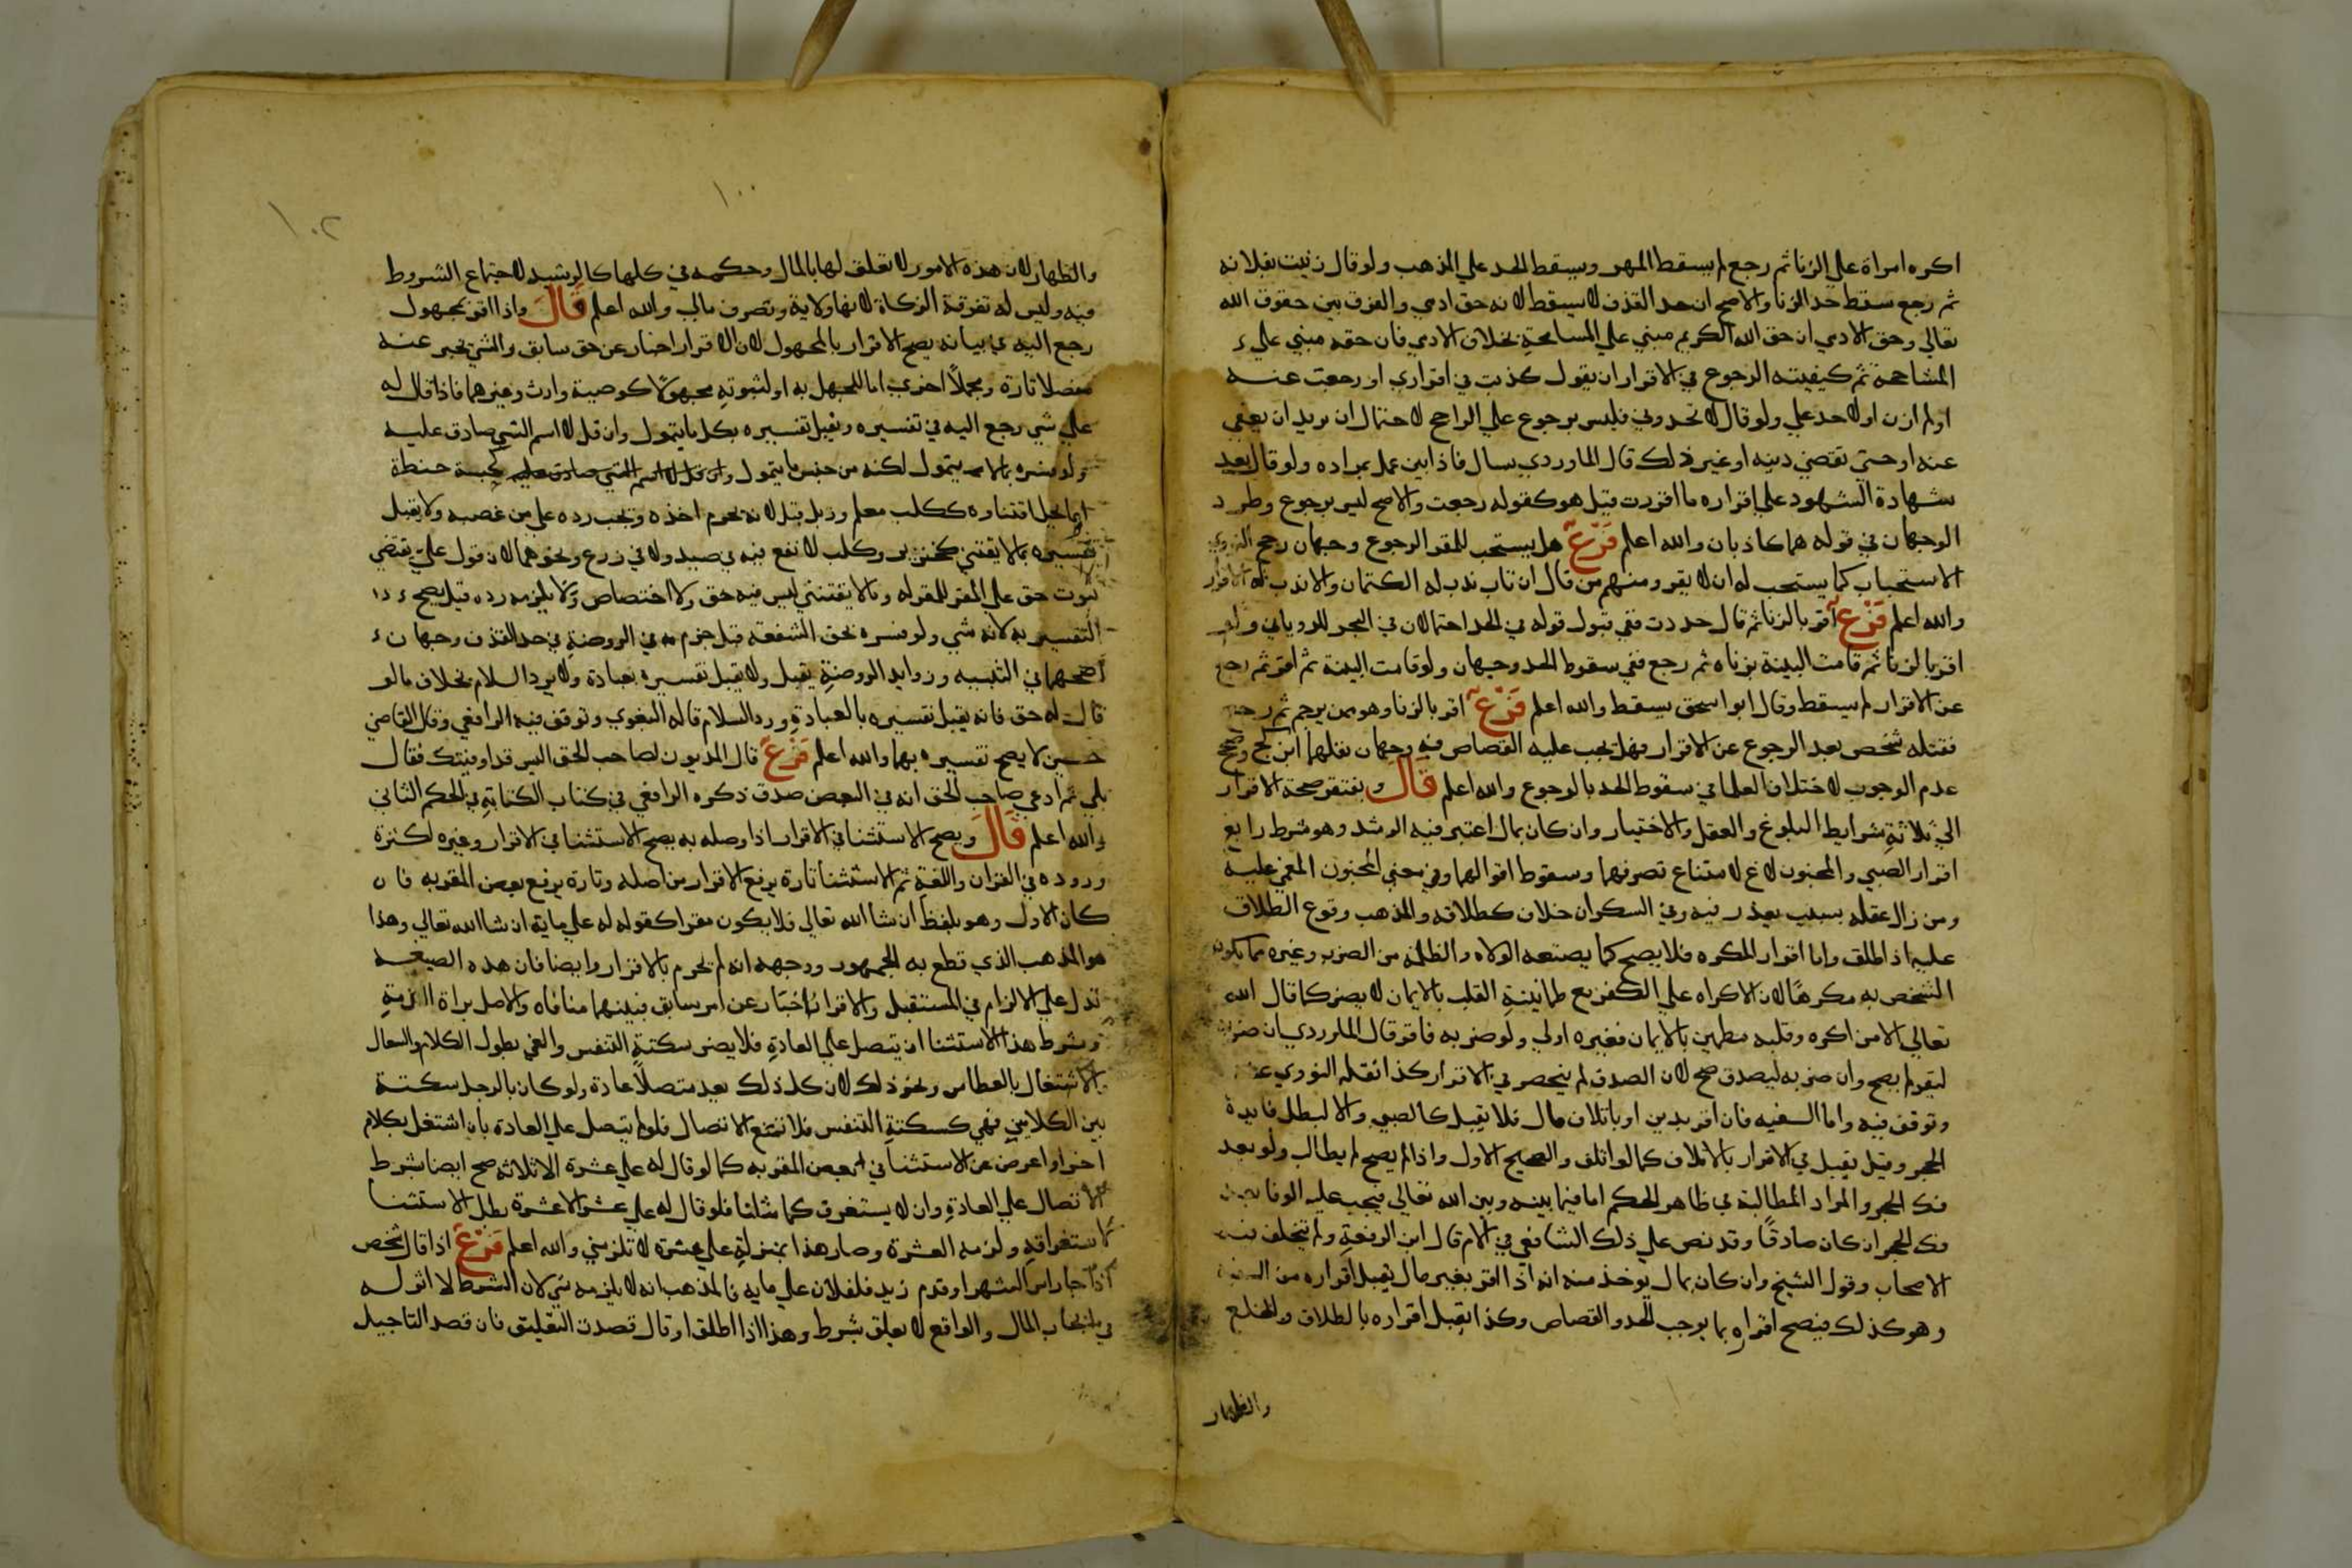 اكره امراة علي الزنا ثم رجع لم يسقط المهر ويسقط الحد علي المذهب ولو قال زنيت بفلانه
ثم رجع سقط حد الزنا والاصح ان حد القذف لا يسقط لانه حق ادمي والفرق بين حقوق الله
تعالي وحق الادمي ان حق الله الكريم مبني علي المسامحة بخلاف الادمي فان حقه مبني علي
المشاححة ثم كيفيته الرجوع في الاقرار ان يقول كذبت في اقراري او رجعت عنه
او لم ازن او لا حد علي ولو قال لا تحدوني فليس برجوع علي الراجح لاحتمال ان يريد ان يعفي
عنه او حتي تقضي دينه او غير ذلك قال الماوردي يسال فاذا بين عمل بمراده ولو قال بعد
شهادة الشهود علي اقراره ما اقررت قيل هو كقوله رجعت والاصح ليس برجوع وطرد
الوجهان في قوله هما كاذبان والله اعلم فرع هل يستحب للمقر الرجوع وجهان رجح النووي
الاستحباب كما يستحب له ان لا يقر ومنهم من قال ان تاب ندب له الكتمان والا ندب له الاقرار
والله اعلم فرع اقر بالزنا ثم قال حددت ففي قبول قوله في الحد احتمالان في البحر للروياني ولو
اقر بالزنا ثم قامت البينة بزناه ثم رجع ففي سقوط الحد وجهان ولو قامت البينة ثم اقر ثم رجع
عن الاقرار لم يسقط وقال ابو اسحق يسقط والله اعلم فرع اقر بالزنا وهو ممن يرجم ثم رجع
فقتله شخص بعد الرجوع عن الاقرار فهل يجب عليه القصاص فيه وجهان نقلهما ابن كج وصحح
عدم الوجوب لاختلاف العلما في سقوط الحد بالرجوع والله اعلم قال وتفتقر صحة الاقرار
الي ثلاثة شرايط البلوغ والعقل والاختيار وان كان بمال اعتبر فيه الرشد وهو شرط رابع
اقرار الصبي والمجنون لاغ لامتناع تصرفهما وسقوط اقوالهما وفي معني المجنون المغمي عليه
ومن زال عقله بسبب يعذر فيه وفي السكران خلاف كطلاقه والمذهب وقوع الطلاق
عليه اذا طلق واما اقرار المكره فلا يصح كما يصنعه الولاه والظلمة من الضرب وغيره مما يكون
الشخص به مكرها لان الاكراه علي الكفر مع طمانينة القلب بالايمان لا يضر كما قال الله
تعالي الا من اكره وقلبه مطمين بالايمان فغيره اولي ولو ضربه فاقر قال الماوردي ان ضربه
ليقر لم يصح وان ضربه ليصدق صح لان الصدق لم ينحصر في الاقرار كذا نقله النووي عنه
وتوقف فيه واما السفيه فان اقر بدين او باتلاف مال فلا يقبل كالصبي والا لبطل فايدة
الحجر وقيل يقبل في الاقرار بالاتلاف كما لو اتلف والصحيح الاول واذا لم يصح لم يطالب ولو بعد
فك الحجر والمراد المطالبة في ظاهر الحكم اما فيما بينه وبين الله تعالي فيجب عليه الوفا بعد
فك الحجر ان كان صادقا وقد نص علي ذلك الشافعي في الام قال ابن الرفعة ولم يختلف فيه
الاصحاب وقول الشيخ وان كان بمال يوخذ منه انه اذا اقر بغير مال يقبل اقراره من السفيه
وهو كذلك فيصح اقراره بما يوجب الحد والقصاص وكذا يقبل اقراره بالطلاق والخلع
والظهار
١٠٠
١٠٢
والظهار لان هذه الامور لا تعلق لها بالمال وحكمه في كلها كالرشيد لاجتماع الشروط
فيه وليس له تفرقة الزكاة لانها ولاية وتصرف مالي والله اعلم قال واذا اقر بمجهول
رجع اليه في بيانه يصح الاقرار بالمجهول لان الاقرار اخبار عن حق سابق والشي يخبر عنه
مفصلا تارة ومجملا اخري اما للجهل به او لثبوته مجهولا كوصية وارث وغيرهما فاذا قال له
علي شي رجع اليه في تفسيره ويقبل تفسيره بكل ما يتمول وان قل لان اسم الشي صادق عليه
ولو فسره بما لا يتمول لكنه من جنس ما يتمول وان قل لان اسم الشي صادق عليه كحبة حنطة
او بما يحل اقتناوه ككلب معلم وزبل قبل لانه يحرم اخذه ويجب رده علي من غصبه ولا يقبل
تفسيره بما لا يقتني كخنزير وكلب لا نفع فيه في صيد ولا في زرع ونحوهما لان قول علي يقتضي
ثبوت حق علي المقر للمقر له وما لا يقتني ليس فيه حق ولا اختصاص ولا يلزمه رده قيل يصح
التفسير به لانه شي ولو فسره بحق الشفعة قبل جزم به في الروضة في حد القذف وجهان
اصحهما في التنبيه وزوايد الروضة يقبل ولا يقبل تفسيره بعبادة ولا برد السلام بخلاف ما لو
قال له حق فانه يقبل تفسيره بالعبادة ورد السلام قاله البغوي وتوقف فيه الرافعي وقال القاضي
حسين لا يصح تفسيره بهما والله اعلم فرع قال المديون لصاحب الحق اليس قد اوفيتك فقال
بلي ثم ادعي صاحب الحق انه في البعض صدق ذكره الرافعي في كتاب الكتابة في الحكم الثاني
والله اعلم قال ويصح الاستثنا في الاقرار اذا وصله به يصح الاستثنا في الاقرار وغيره لكثرة
وروده في القران واللغة ثم الاستثنا تارة يرفع الاقرار من اصله وتارة يرفع بعض المقر به فان
كان الاول وهو بلفظ ان شا الله تعالي فلا يكون مقرا كقوله له علي ماية ان شا الله تعالي وهذا
هو المذهب الذي قطع به الجمهور ووجهه انه لم يجزم بالاقرار وايضا فان هذه الصيغه
تدل علي الالزام في المستقبل والاقرار اخبار عن امر سابق فبينهما منافاه والاصل براة الذمة
وشرط هذا الاستثنا ان يتصل علي العادة فلا يضر سكتة التنفس والعي بطول الكلام والسعال
والاشتغال بالعطاس ونحو ذلك لان كل ذلك يعد متصلا عادة ولو كان بالرجل سكتة
بين الكلامين فهي كسكتة التنفس فلا تمنع الاتصال فلو لم يتصل علي العادة بان اشتغل بكلام
اخر او اعرض عن الاستثنا في بعض المقر به كما لو قال له علي عشرة الا ثلاثة صح ايضا بشرط
الاتصال علي العادة وان لا يستغرق كما مثلنا فلو قال له علي عشرة الا عشرة بطل الاستثنا
لاستغراقه ولزمه العشرة وصار هذا بمنزلة علي عشرة لا تلزمني والله اعلم فرع اذا قال شخص
اذا جا راس الشهر او قدم زيد فلفلان علي مايه فالمذهب انه لا يلزمه شي لان الشرط لا اثر له
في ايجاب المال والواقع لا يعلق بشرط وهذا اذا اطلق او قال قصدت التعليق فان قصد التاجيل